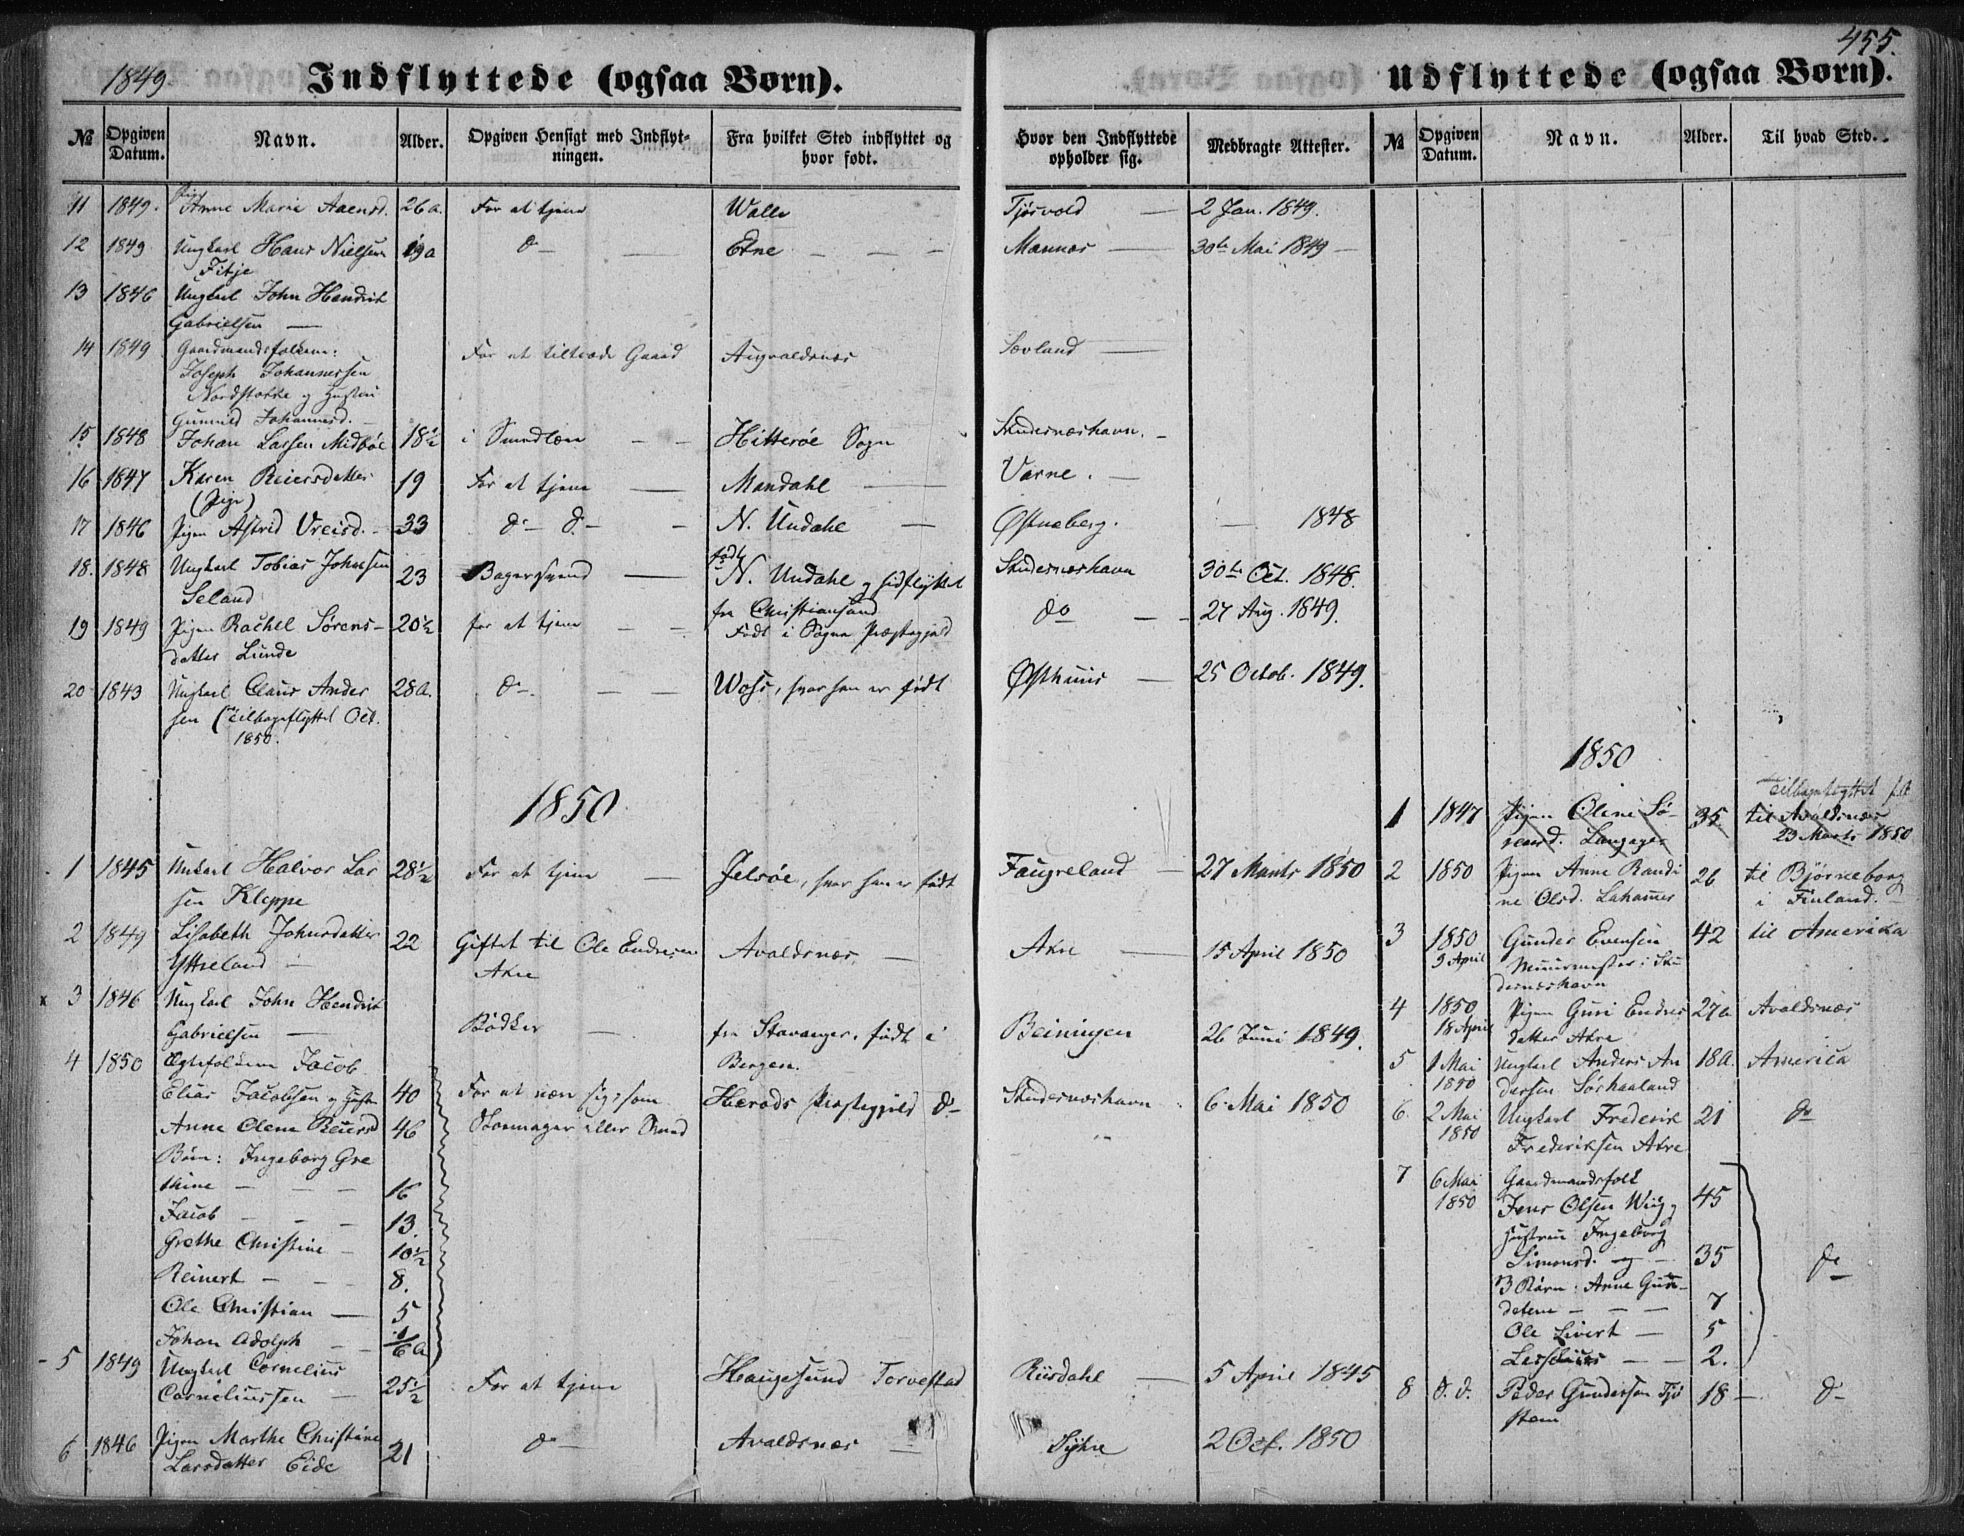 1849.
Indflyttede (ogsaa Børn).
№
Opgiven Datum.
Navn.
Alder.
Opgiven Hensigt med Indflyt-
ningen.
Fra hvilket Sted indflyttet og
hvor født.
Hvor den Indflyttede
opholder sig.
Medbragte Attester.
11 1849. Pigen Anne Marie 26 a. For at tjene Walle Tjøsvold — 2 Jan. 1849.
12 1849 Ungkarl Hans Nielsen 19 a do — Etne — — — Mannes — 30te Mai 1849 —
Fitje
13 1846 Ungkarl John Hendrik
Gabrielsen —
14 1849 Gaardmandsfolkene: For at tiltræde Gaard Augvaldsnæs Sævland —
Joseph Johannessen
Nordstokke og Hustru
Gunnild Johannesd. —
15 1848 Johan Larsen Midbøe 18½ i Smedlære — — Hitterøe Sogn Skudesnæshavn. —
16 1847 Karen Reiersdatter 19 For at tjene — Mandahl — Varne. —
(Pige)
17 1846 Pigen Astrid Vreisd. — 33 do — do — — N. Undahl — Østneberg. — 1848
18. 1848 Ungkarl Tobias Johnsen 23 Bagersvend — født N. Undahl og hidflyttet Skudesnæshavn 30te Oct. 1848.
Seland fra Christiansand
19 1849 Pigen Rachel Sørens- 20½ for at tjene — — Født i Sogne Præstegjeld do — — 27 Aug. 1849.
datter Lunde
20 1843 Ungkarl Claus Ander 28 a. do — — — Woss, hvor han er født Østhuus — 25 Octob. 1849.
sen (Tilbageflyttet Oct.
1850.
1850
1 1845 Unkarl Halvor Lar 28½ For at tjene — Jelsøe, hvor han er født Faugreland — 27 Marts 1850
sen Kleppe
2 1849 Lisabeth Johnsdatter 22 Giftet til Ole Endresen Avaldsnæs — Akre — 15 April 1850
Yttreland — Akre
x 3 1846 Ungkarl John Hendrik
Gabrielsen — Bødker — fra Stavanger, født i Beiningen 26 Juni 1849.
Bergen.
4 1850 Ægtefolkene Jacob
Elias Jacobsen og Hustru 40 For at nære sig som Herads Præstegjeld do — Skudesnæshavn 6 Mai 1850
Anne Olena Reiersd 46 Skomager eller Smed
Børn: Ingeborg Gre
thine — — — 16
Jacob — — — 13.
Grethe Christine — 10½
Reinert — — — 8.
Ole Christian — 5
Johan Adolph — — 1/6 a
5 1849 Ungkarl Cornelius
Corneliussen — 25½ For at tjene Haugesund Torvestad Riisdahl — 5 April 1845
6 1846 Pigen Marthe Christine 21 do — Avaldsnæs — Syhre 2 Oct. 1850
Larsdatter Eide
455.
Udflyttede (ogsaa Børn).
№
Opgiven Datum.
Navn.
Alder.
Til hvad Sted.
1850
Tilbageflyttet
1 1847 Pigen Oline Sø- 35 til Avaldsnæs
rensd. Langager 23 Marts 1850
2 1850 Pigen Anne Randi 26 til Bjørneborg
ne Olsd. Lahamer i Finland. —
3 1850 Gunder Evensen 42 til Amerika
9 April Muurmester i Sku
desnæshavn
4 1850 Pigen Guri Endres 27 a Avaldsnæs
18 April datter Akre
5 1 Mai Ungkarl Anders An 18 a. America
1850 dersen Sørhaaland
6. 2 Mai Ungkarl Frederik 21 do
1850 Frederiksen Akre
7 6 Mai Gaardmandsfolk
1850 Jens Olsen Wiig og 45
Hustru Ingeborg
Simonsd. og — 35 do —
3 Børn: Anne Gun-
datene — — — 7
Ole Sivert — 5
— — 2.
8 d. d. Peder Gundersen Tjø 18 — do —
stem